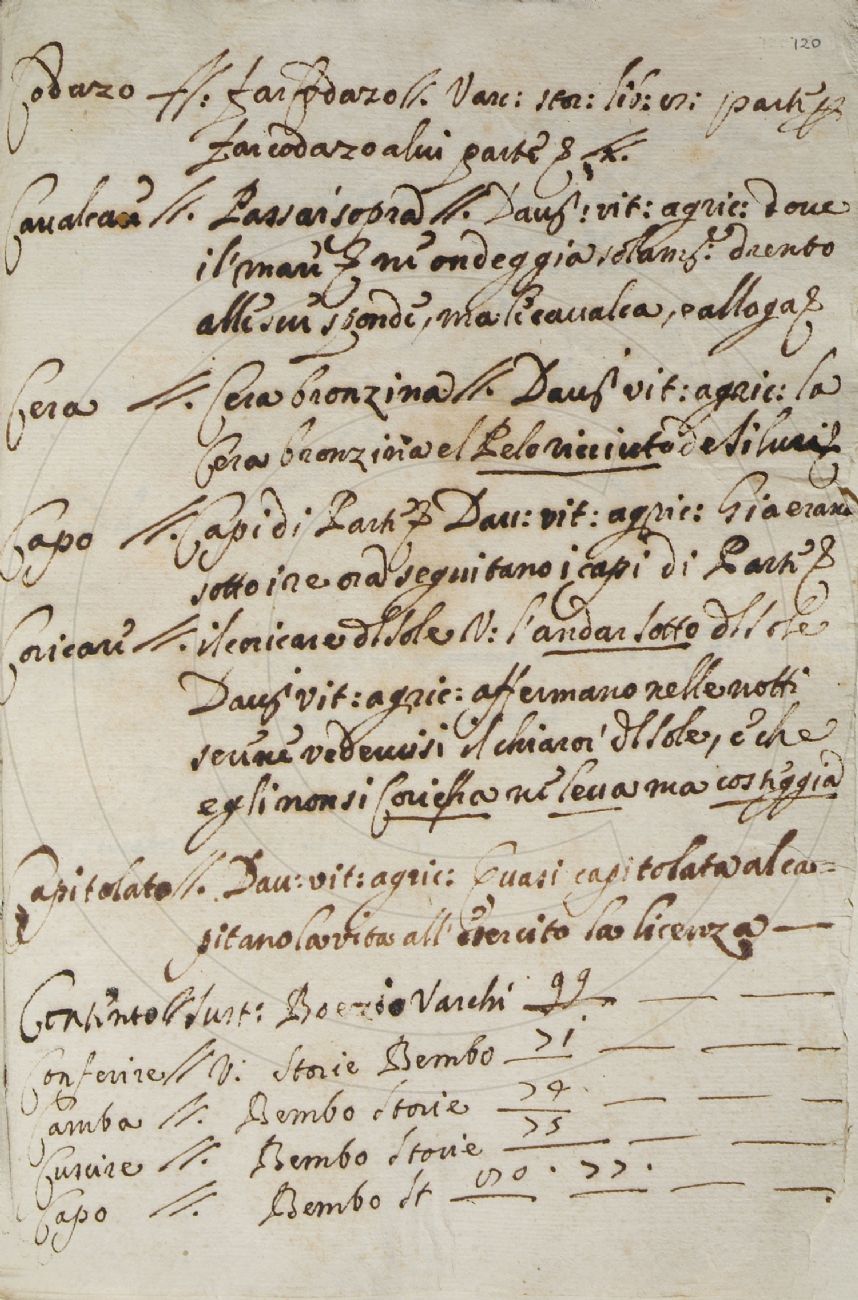 120
Codazo //. far codazo //. Varc: stor: lib: 15: parte
far codazo a lui parte
Cavalcare //. Passar sopra //. Dau: vit: agric: dove
il mare & nē ondeggia solam: drento
alle sue sponde, ma le cavalca, e alloga &
Cera //. Cera bronzina //. Dau: vit: agric: la
Cera bronzina el Pelo ricciuto de Siluri &
Capo //. Capi di Parte & Dau: vit: agric: Gia erano
sotto i re ora seguitano i capi di Parte &
Coricare //. il coricare dl sole V: l'andar sotto dl sole
Dau: vit: agric: affermano nelle notti
serene vedervisi il chiaror' dl sole, e che
egli non si Corica ne leva ma costeggia
Capitolato //. Dau: vit: agric: Quasi capitolata al ca=
pitano la vita all' esercito la licenza —
Contento // sust: Boezio Varchi 99 — —
Conferire // V: Storie Bembo 71 — — —
Camba //. Bembo Storie 74 — — —
Cuscire //. Bembo Storie 75 — —
Capo //. Bembo St 50 . 77 . — —